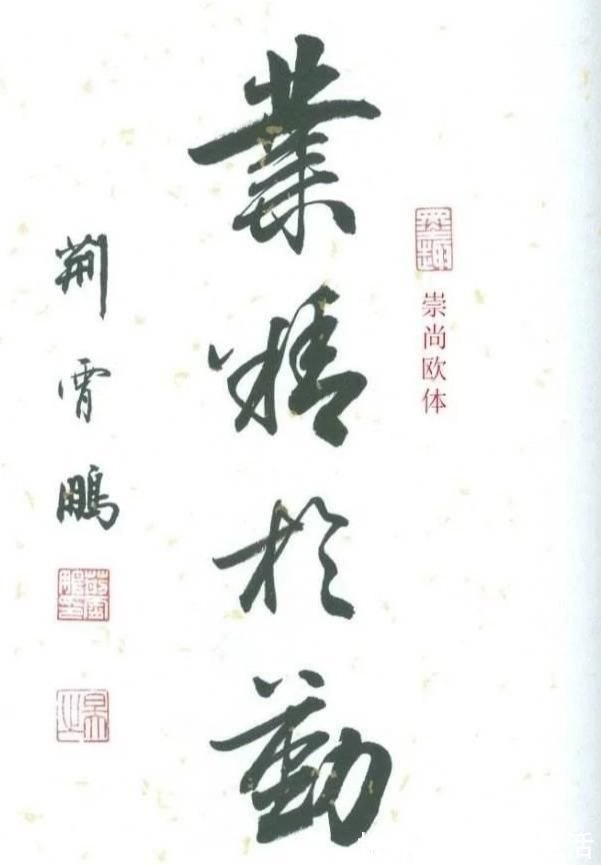 崇尚欧体
業精於勤
荆霄鵬